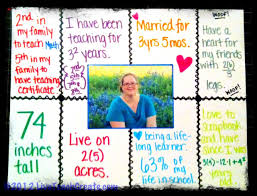 2nd in
my family
to teach Math
5th in my
family to
have teaching
certificate
I have been
teaching for
years.
Married for
3yrs 5mos.
WOOF!
Have a
heart for
my friends
with
legs.
WOOF!
74
inches
tall
Live on
2(5)
acres.
being a life-
long learner.
63% of
my
life in school.
Love to
scrapbook
and have
since I was
years
old.